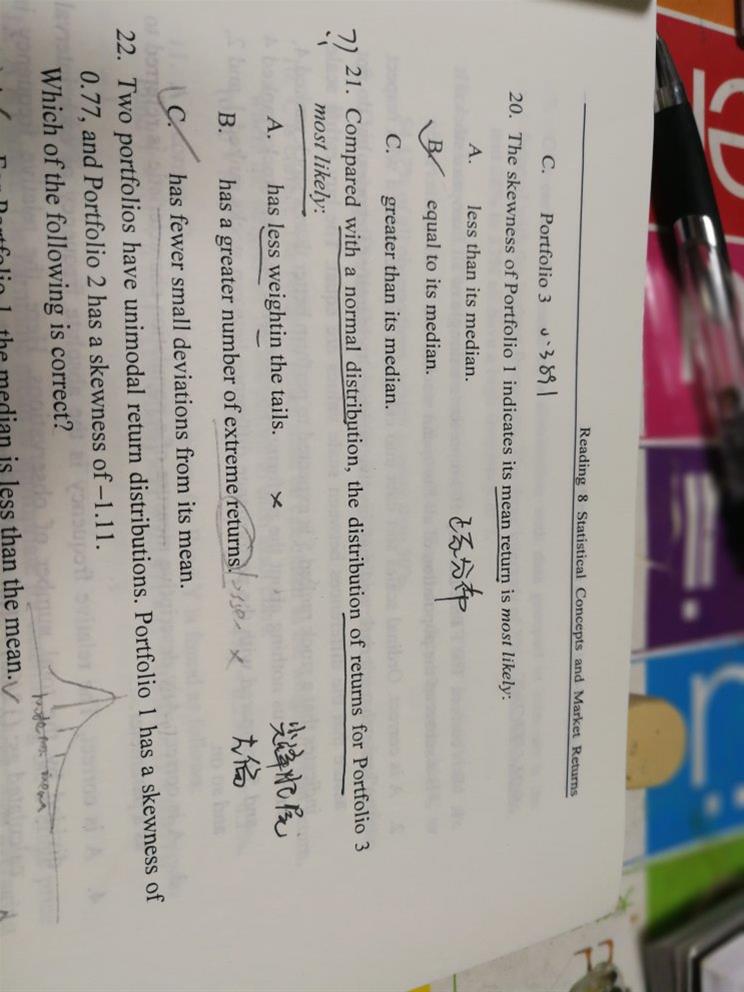 Reading 8 Statistical Concepts and Market Returns
C. Portfolio 3 0.3891
20. The skewness of Portfolio 1 indicates its mean return is most likely:
A. less than its median.
B. equal to its median.
C. greater than its median.
7) 21. Compared with a normal distribution, the distribution of returns for Portfolio 3
most likely:
A. has less weightin the tails. ×
B. has a greater number of extreme returns. ×
C. has fewer small deviations from its mean.
22. Two portfolios have unimodal return distributions. Portfolio 1 has a skewness of
0.77, and Portfolio 2 has a skewness of –1.11.
Which of the following is correct?
For Portfolio 1, the median is less than the mean.